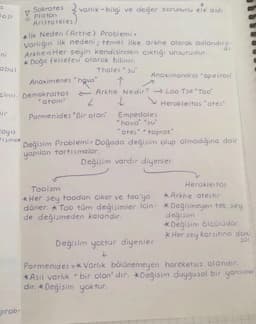 Sokrates
Platon } varlık-bilgi ve değer sorununu ele aldı
Aristoteles
* İlk Neden (Arche) Problemi:
Varlığın ilk nedeni, temel ilke arkhe olarak adlandırılır.
Arkhe=Her şeyin kendisinden çıktığı unsurdur.
* Doğa felsefesi olarak bilinir.
Thales "su"
Anaximenes "hava"
Anaximandros "apeiron"
Demokritos "atom"
Arkhe Nedir?
Lao Tse "Tao"
Herakleitos "ateş"
Parmenides "Bir olan"
Empedoles
"hava" "su"
"ateş" "toprak"
Değişim Problemi: Doğada değişim olup olmadığına dair
yapılan tartışmalar.
Değişim vardır diyenler
Taoizm
* Her şey taodan çıkar ve tao'ya
döner. * Tao tüm değişimler için-
de değişmeden kalandır.
Herakleitos
* Arkhe ateştir
* Değişmeyen tek şey
değişim
* Değişim ölçülüdür.
* Her şey karşıtına dön
Değişim yoktur diyenler
Parmenides => * Varlık bölünemeyen hareketsiz olandır.
* Asıl varlık "bir olan"dır. * Değişim duygusal bir yanılsama
dır. * Değişim yoktur.